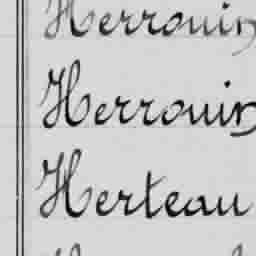 Herrouin
Herrouin
Herteau